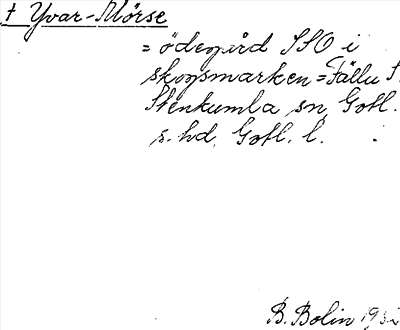 † Yvar-Mörse
= ödegård SSO i
skogsmarken = Fällu S.
Stenkumla sn, Gotl.
s. hd, Gotl. l.
B. Bolin